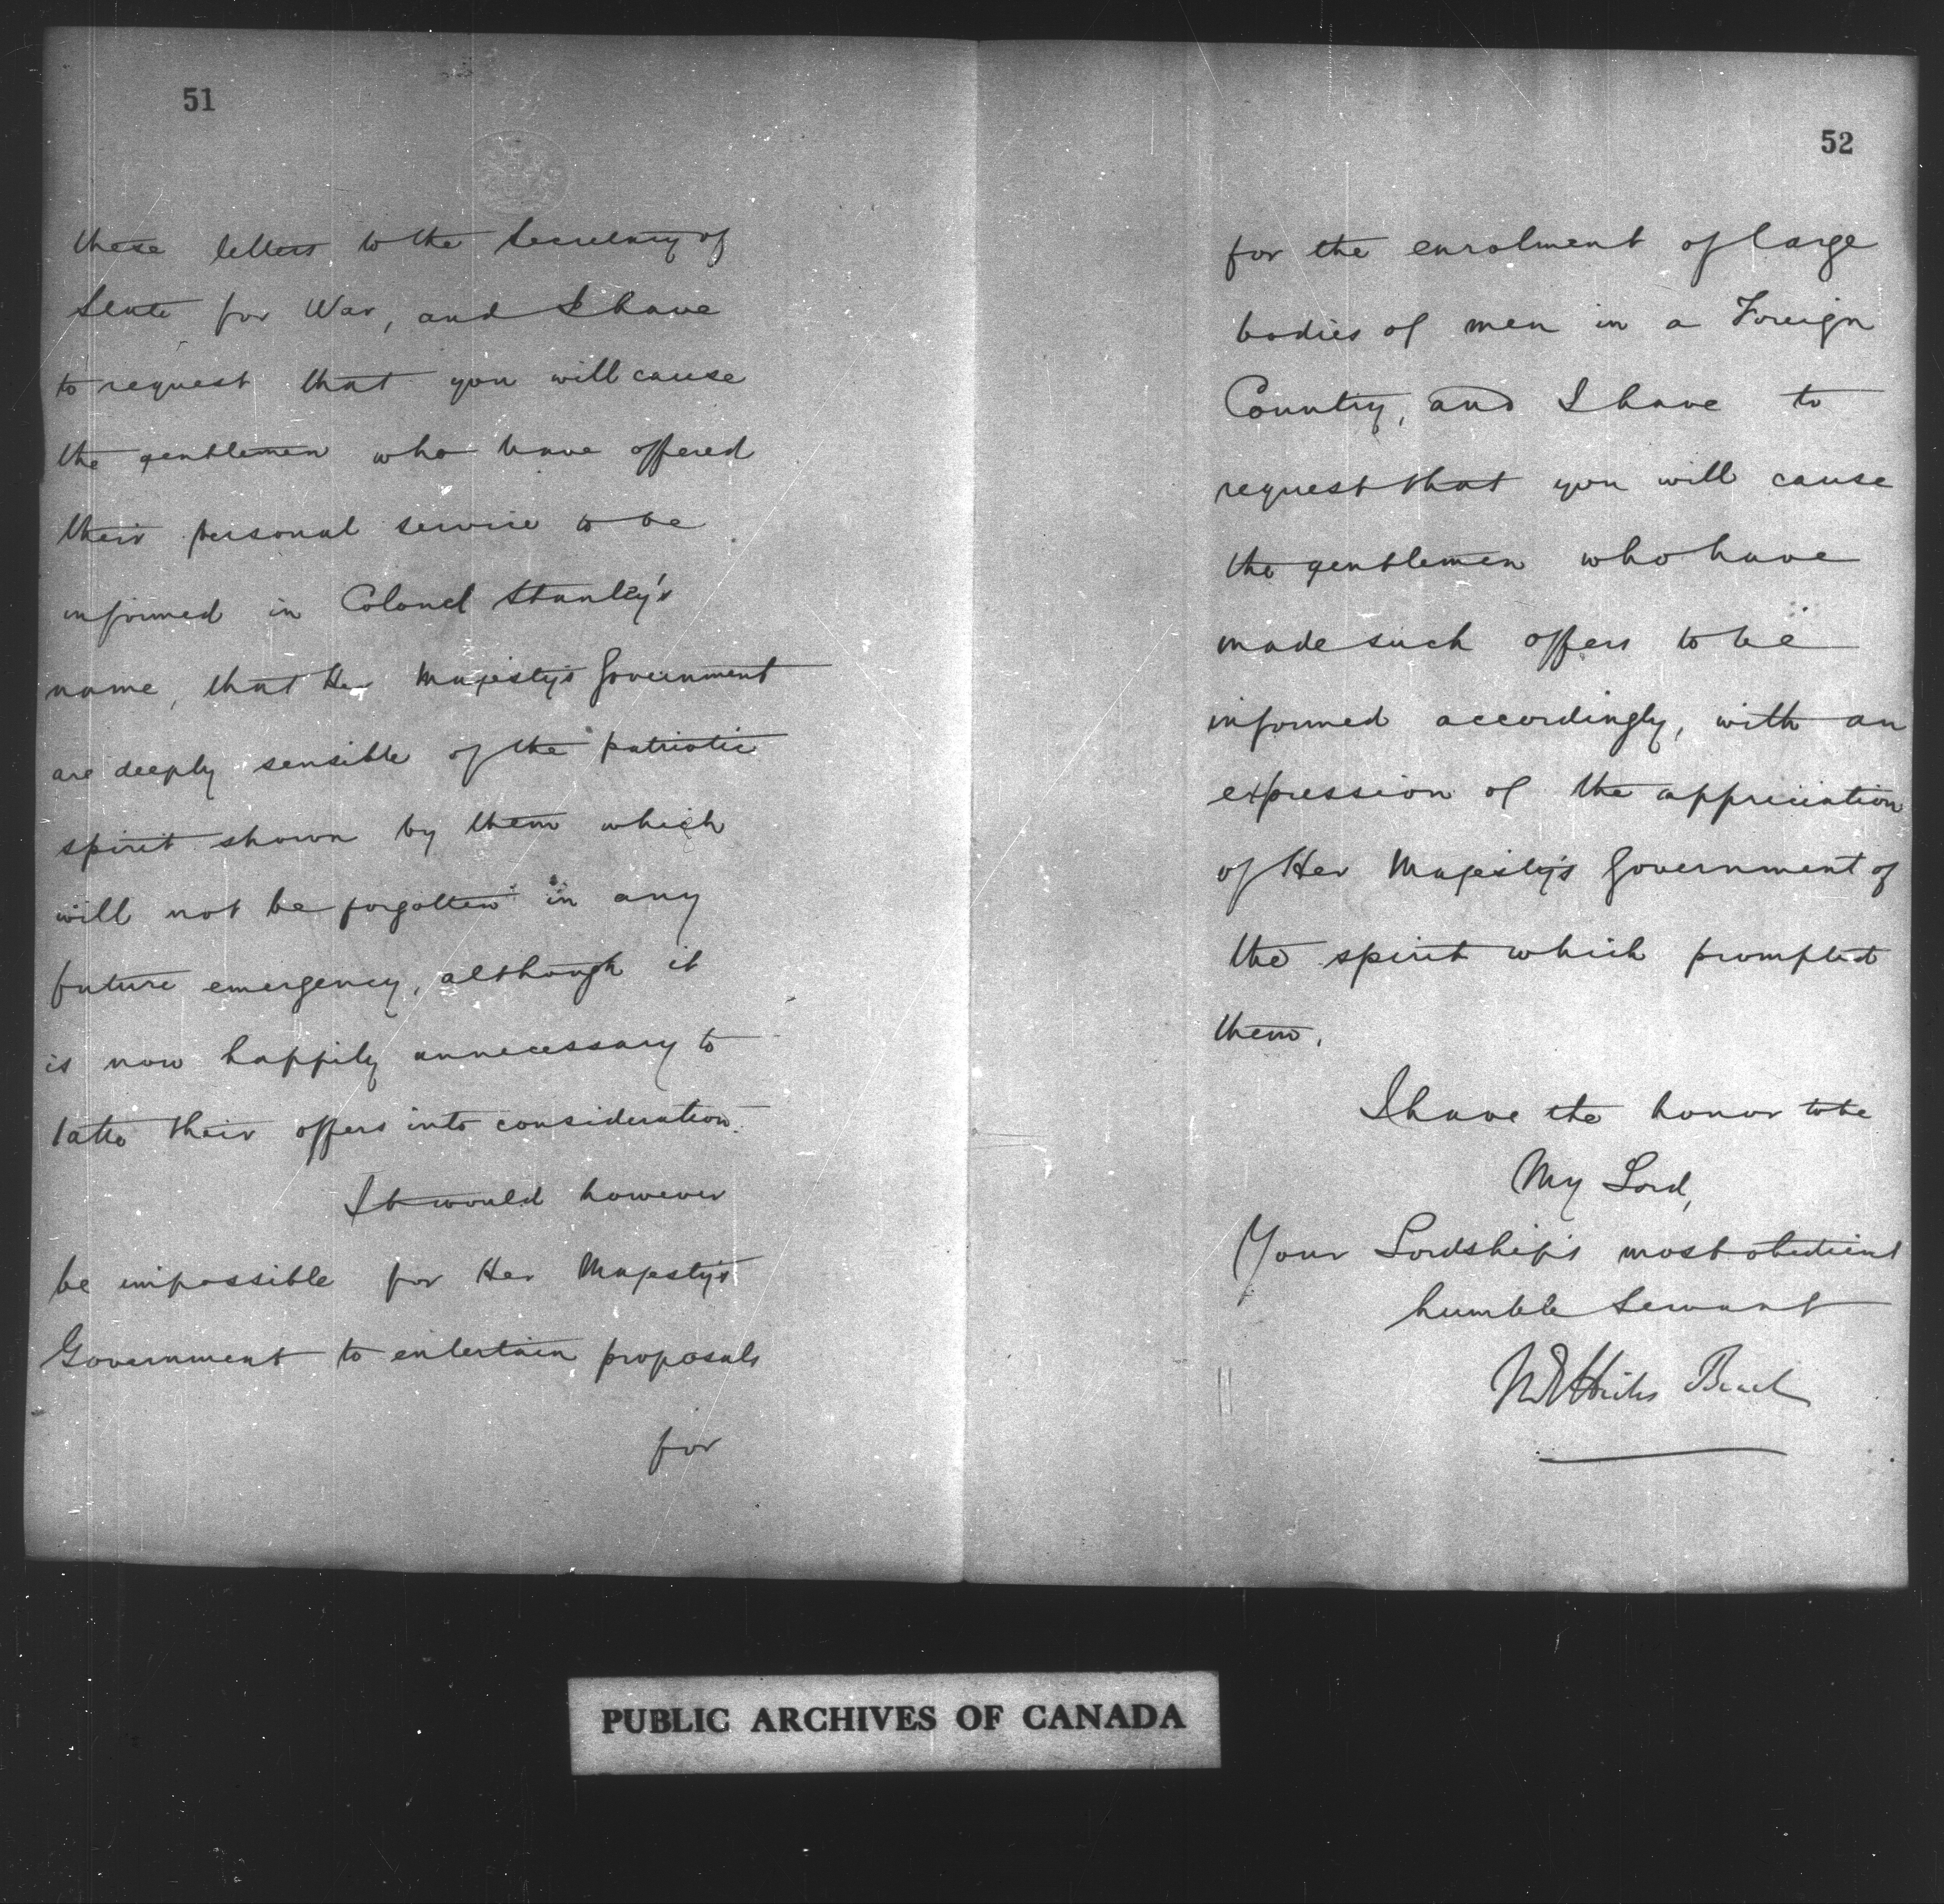 51
these letters to the Secretary of
State for War, and I have
to request that you will cause
the gentlemen who have offered
their personal service to be
informed in Colonel Stanley's
name, that Her Majesty's Government
are deeply sensible of the patriotic
spirit shown by them which
will not be forgotten in any
future emergency, although it
is now happily unnecessary to
take their offers into consideration.
It would however
be impossible for Her Majesty's
Government to entertain proposals
for
52
for the enrolment of large
bodies of men in a Foreign
Country, and I have to
request that you will cause
the gentlemen who have
made such offers to be
informed accordingly, with an
expression of the appreciation
of Her Majesty's Government of
the spirit which prompted
them.
I have the honor to be
My Lord,
Your Lordship's most obedient
humble Servant
M E Hicks Beach
PUBLIC ARCHIVES OF CANADA